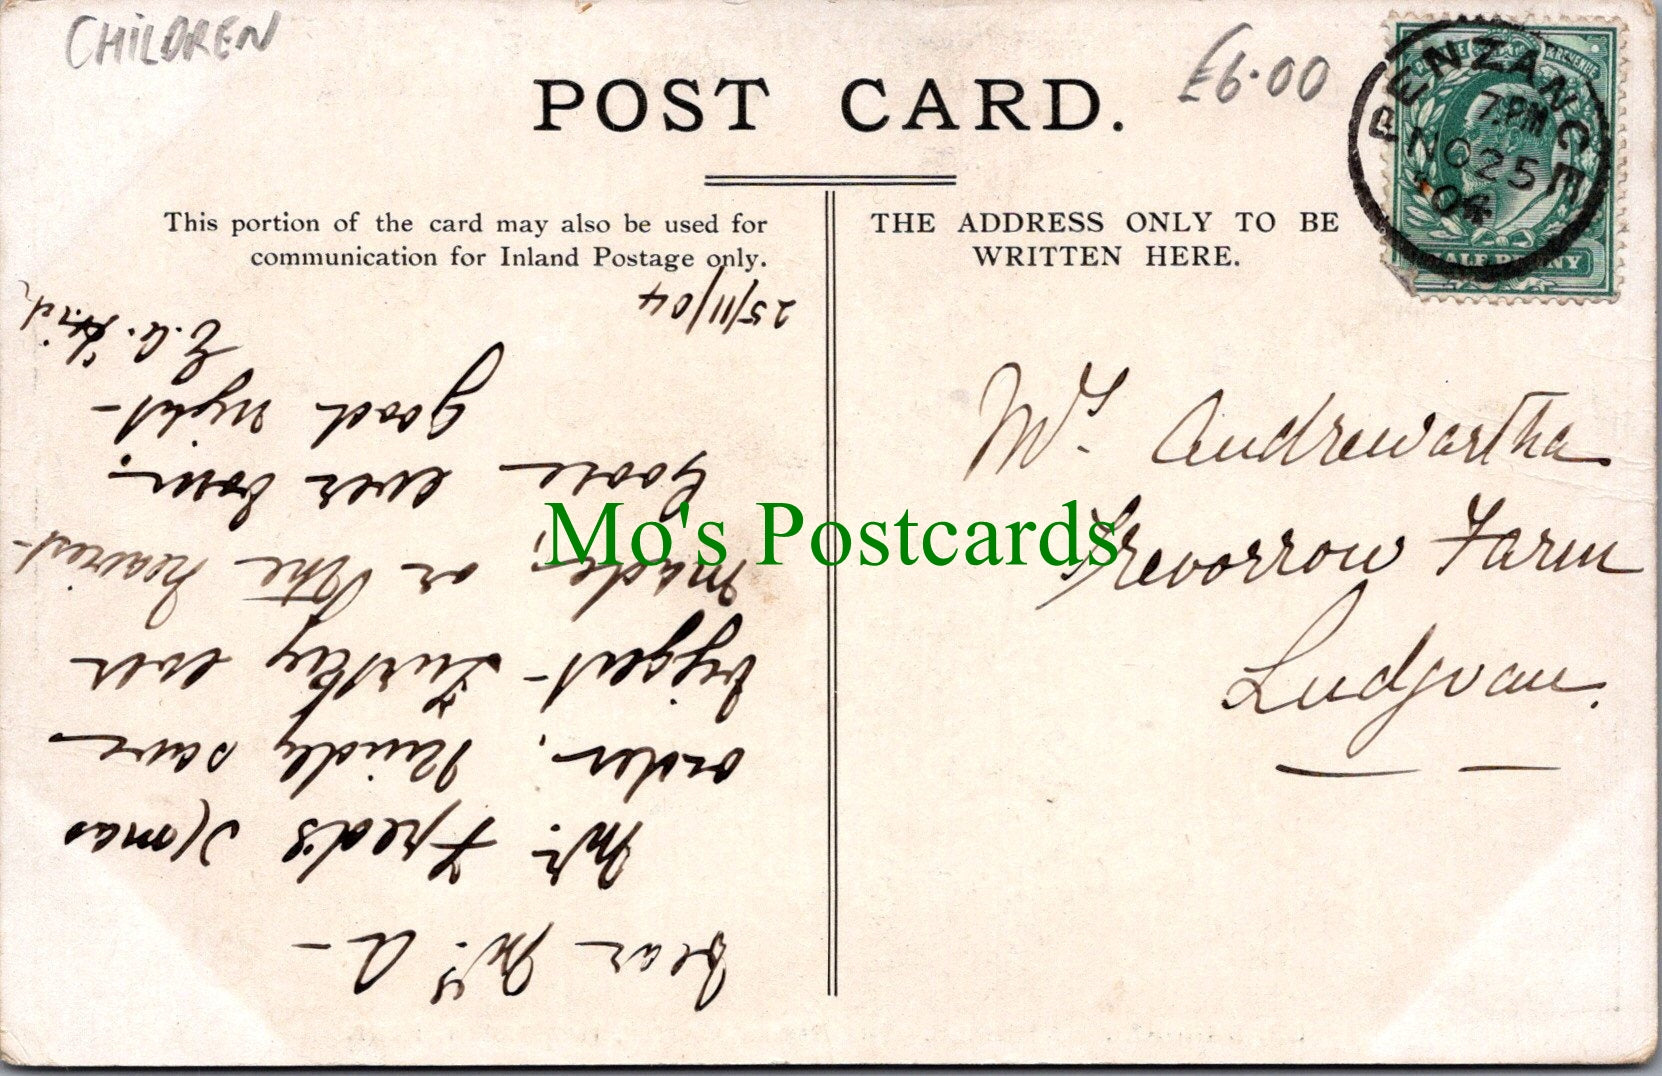 CHILDREN
£6.00
POST CARD.
PENZANCE
7.PM
NO 25
04
HALFPENNY
This portion of the card may also be used for
communication for Inland Postage only.
THE ADDRESS ONLY TO BE
WRITTEN HERE.
Mrs. Andrewartha
Trevorrow Farm
Ludgvan.
Dear Mrs. A —
Mr. Fred's Xmas
order. Kindly save
biggest Turkey ever
made, or the heaviest
Goose ever born.
Good night —
E.A.
25/11/04
Mo's Postcards